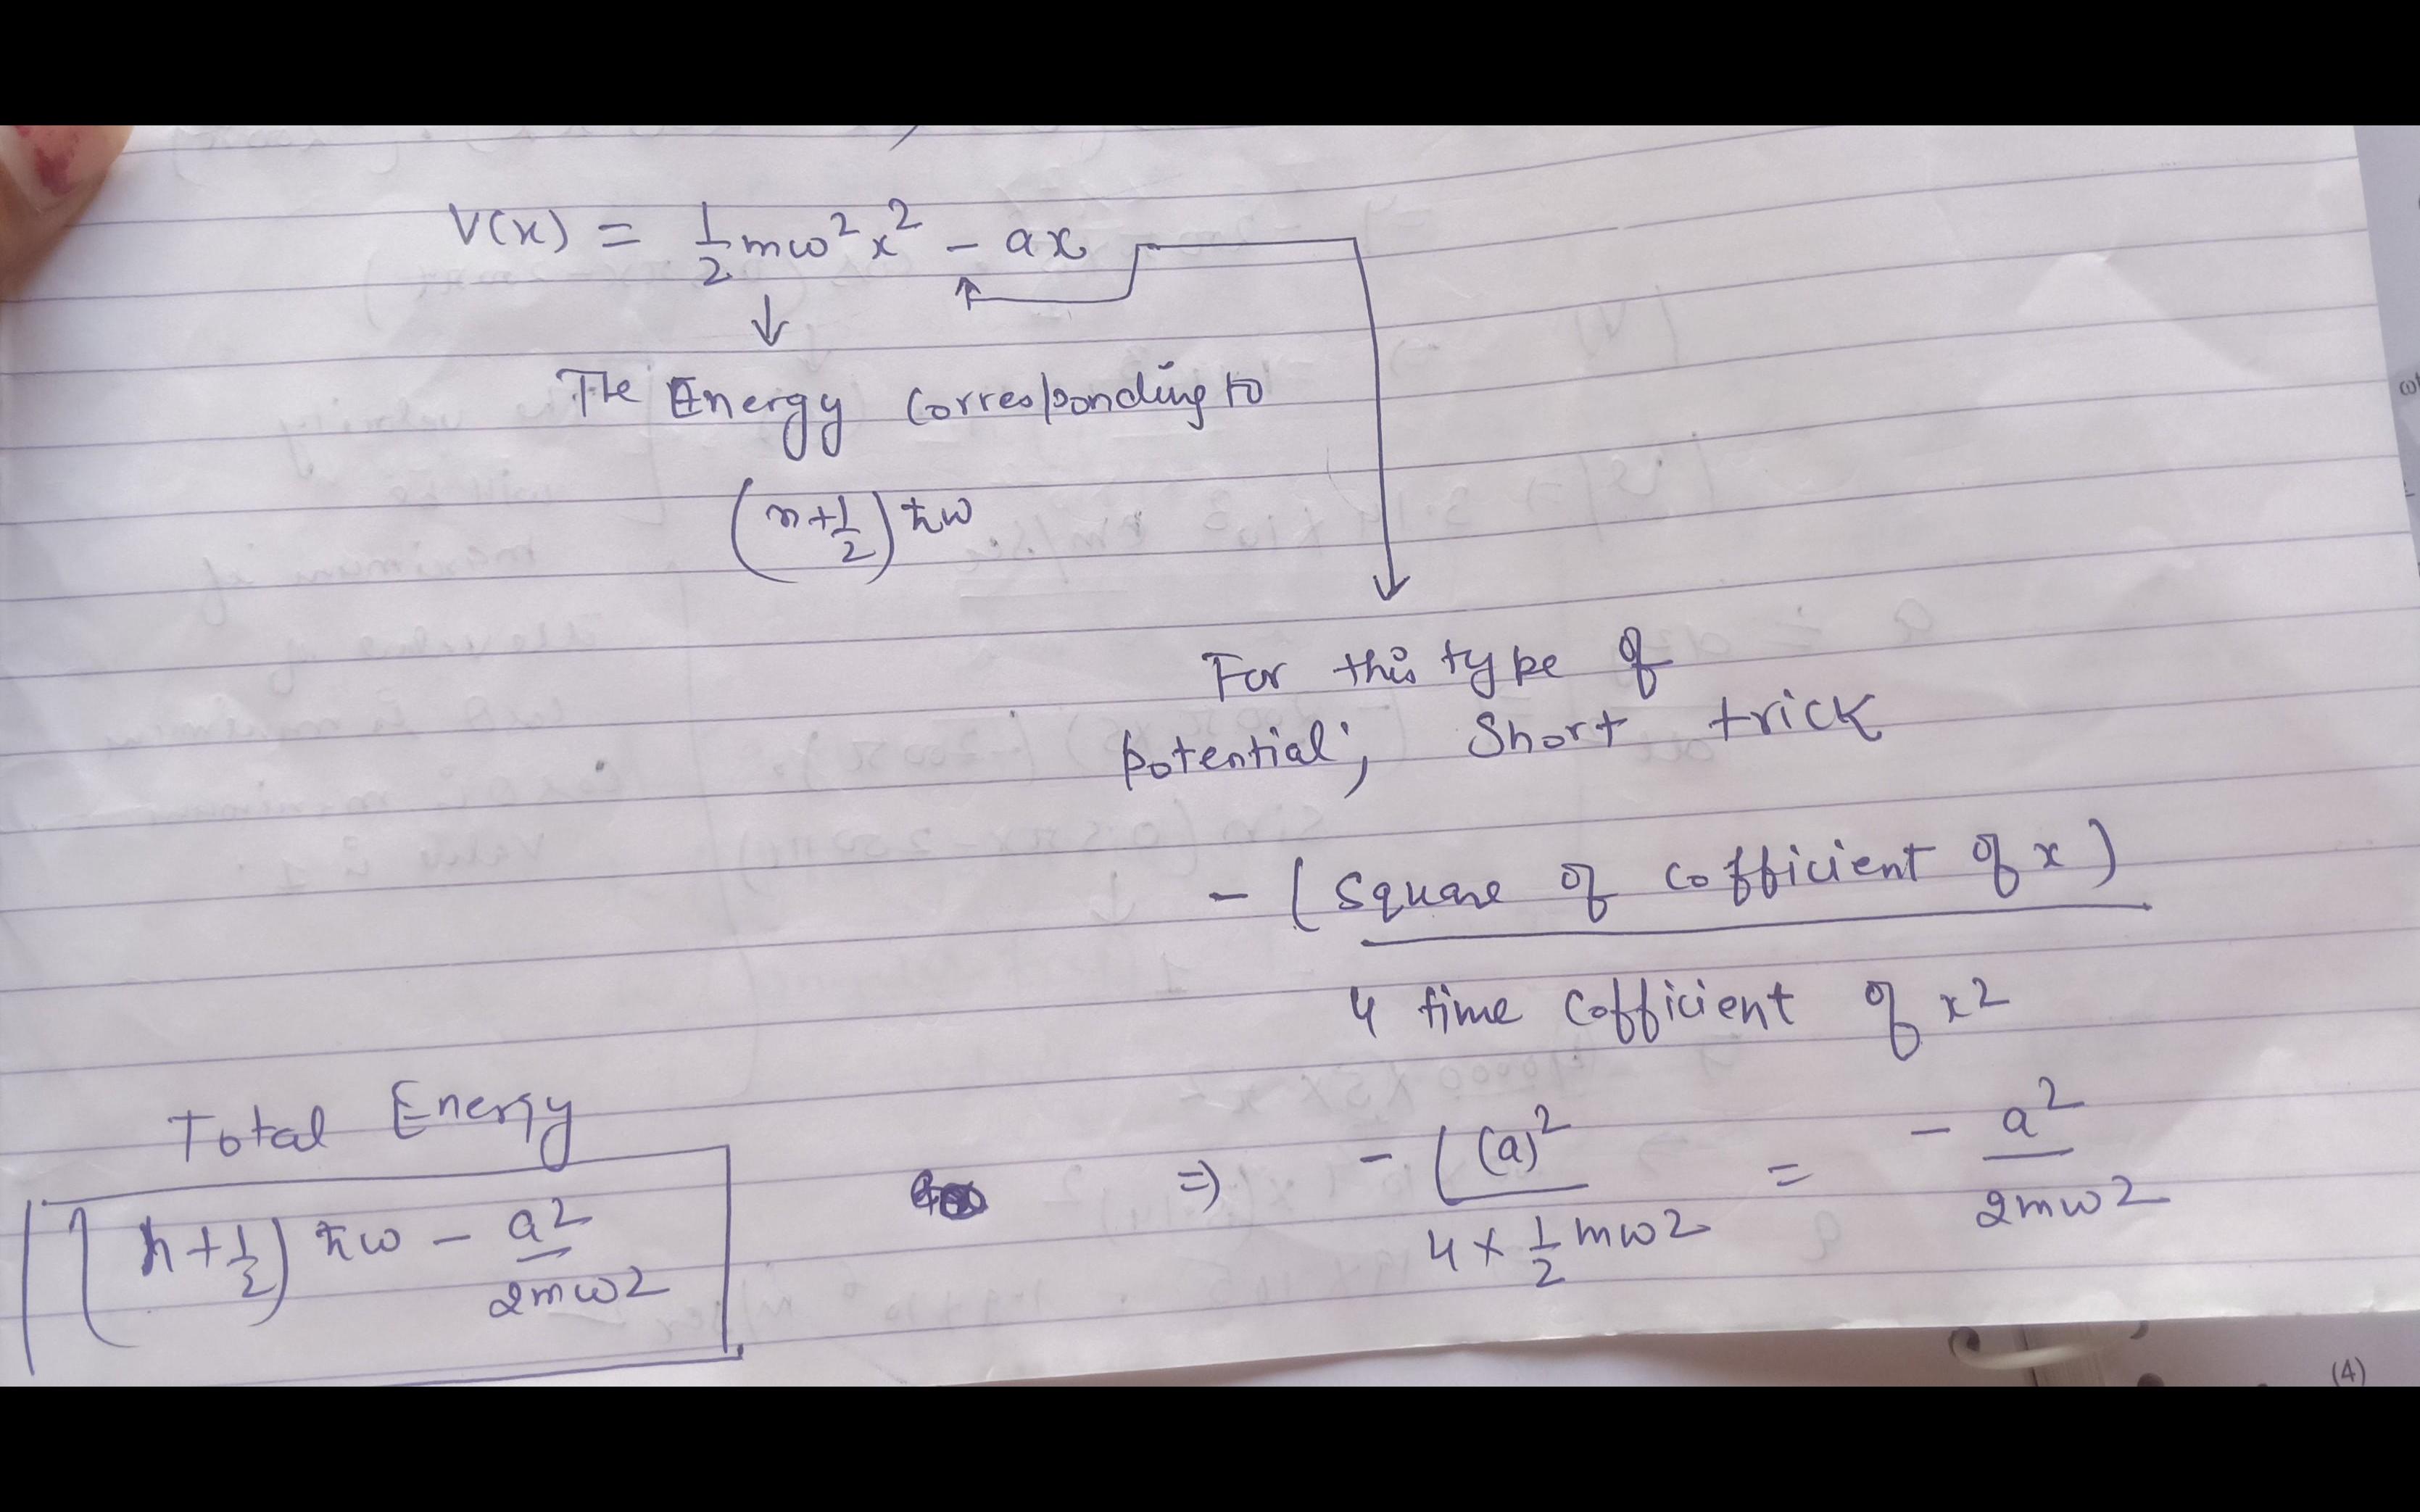 V(x) = 1/2 mω² x² - ax
↓
The Energy Corresponding to
(n+1/2) ħω
For this type of
potential; Short trick
- (Square of cofficient of x)
4 time Cofficient of x2
Total Energy
(n+1/2) ħω - a2/2mω2
=) - ((a)2/4 x 1/2 mω2 = - a2/2mω2
(4)